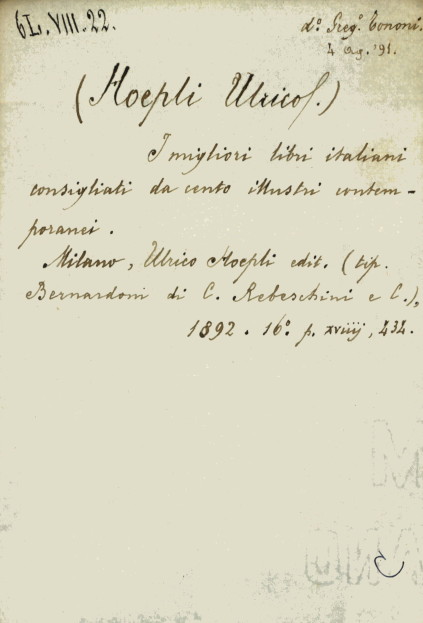 6L.VIII.22.
d.º Greg.º Tononi.
4 Ag. '91.
(Hoepli Ulrico.)
I migliori libri italiani
consigliati da cento illustri contem-
poranei.
Milano, Ulrico Hoepli edit. (tip.
Bernardoni di C. Rebeschini e C.),
1892. 16º. p. xviiij, 434.